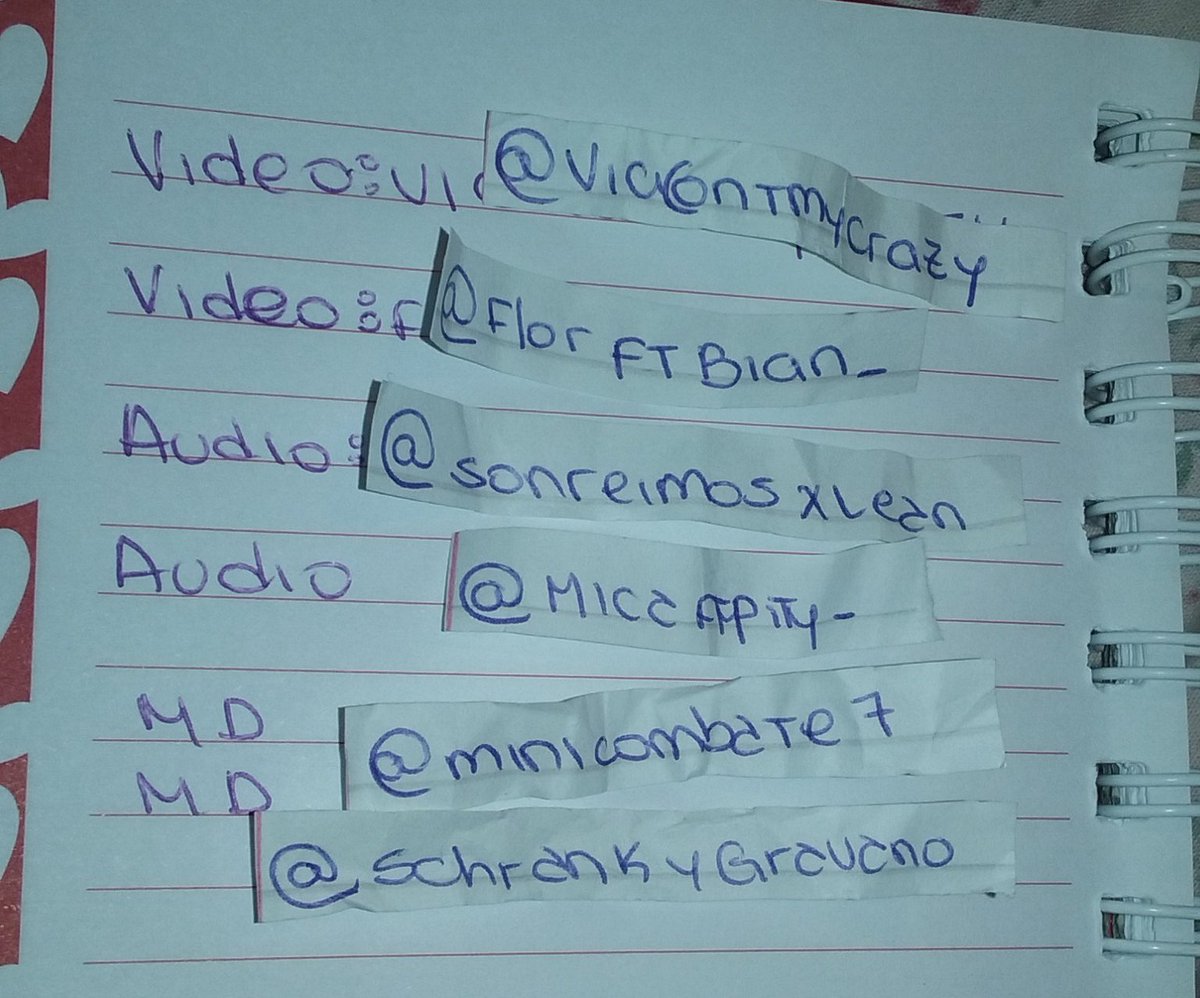 Video: Vid @VicconTmycrazy
Video: F @Flor FTBian_
Audio: @sonreimosxLean
Audio @MicaFTpity_
MD @minicombate7
MD
@SchrankyGravano